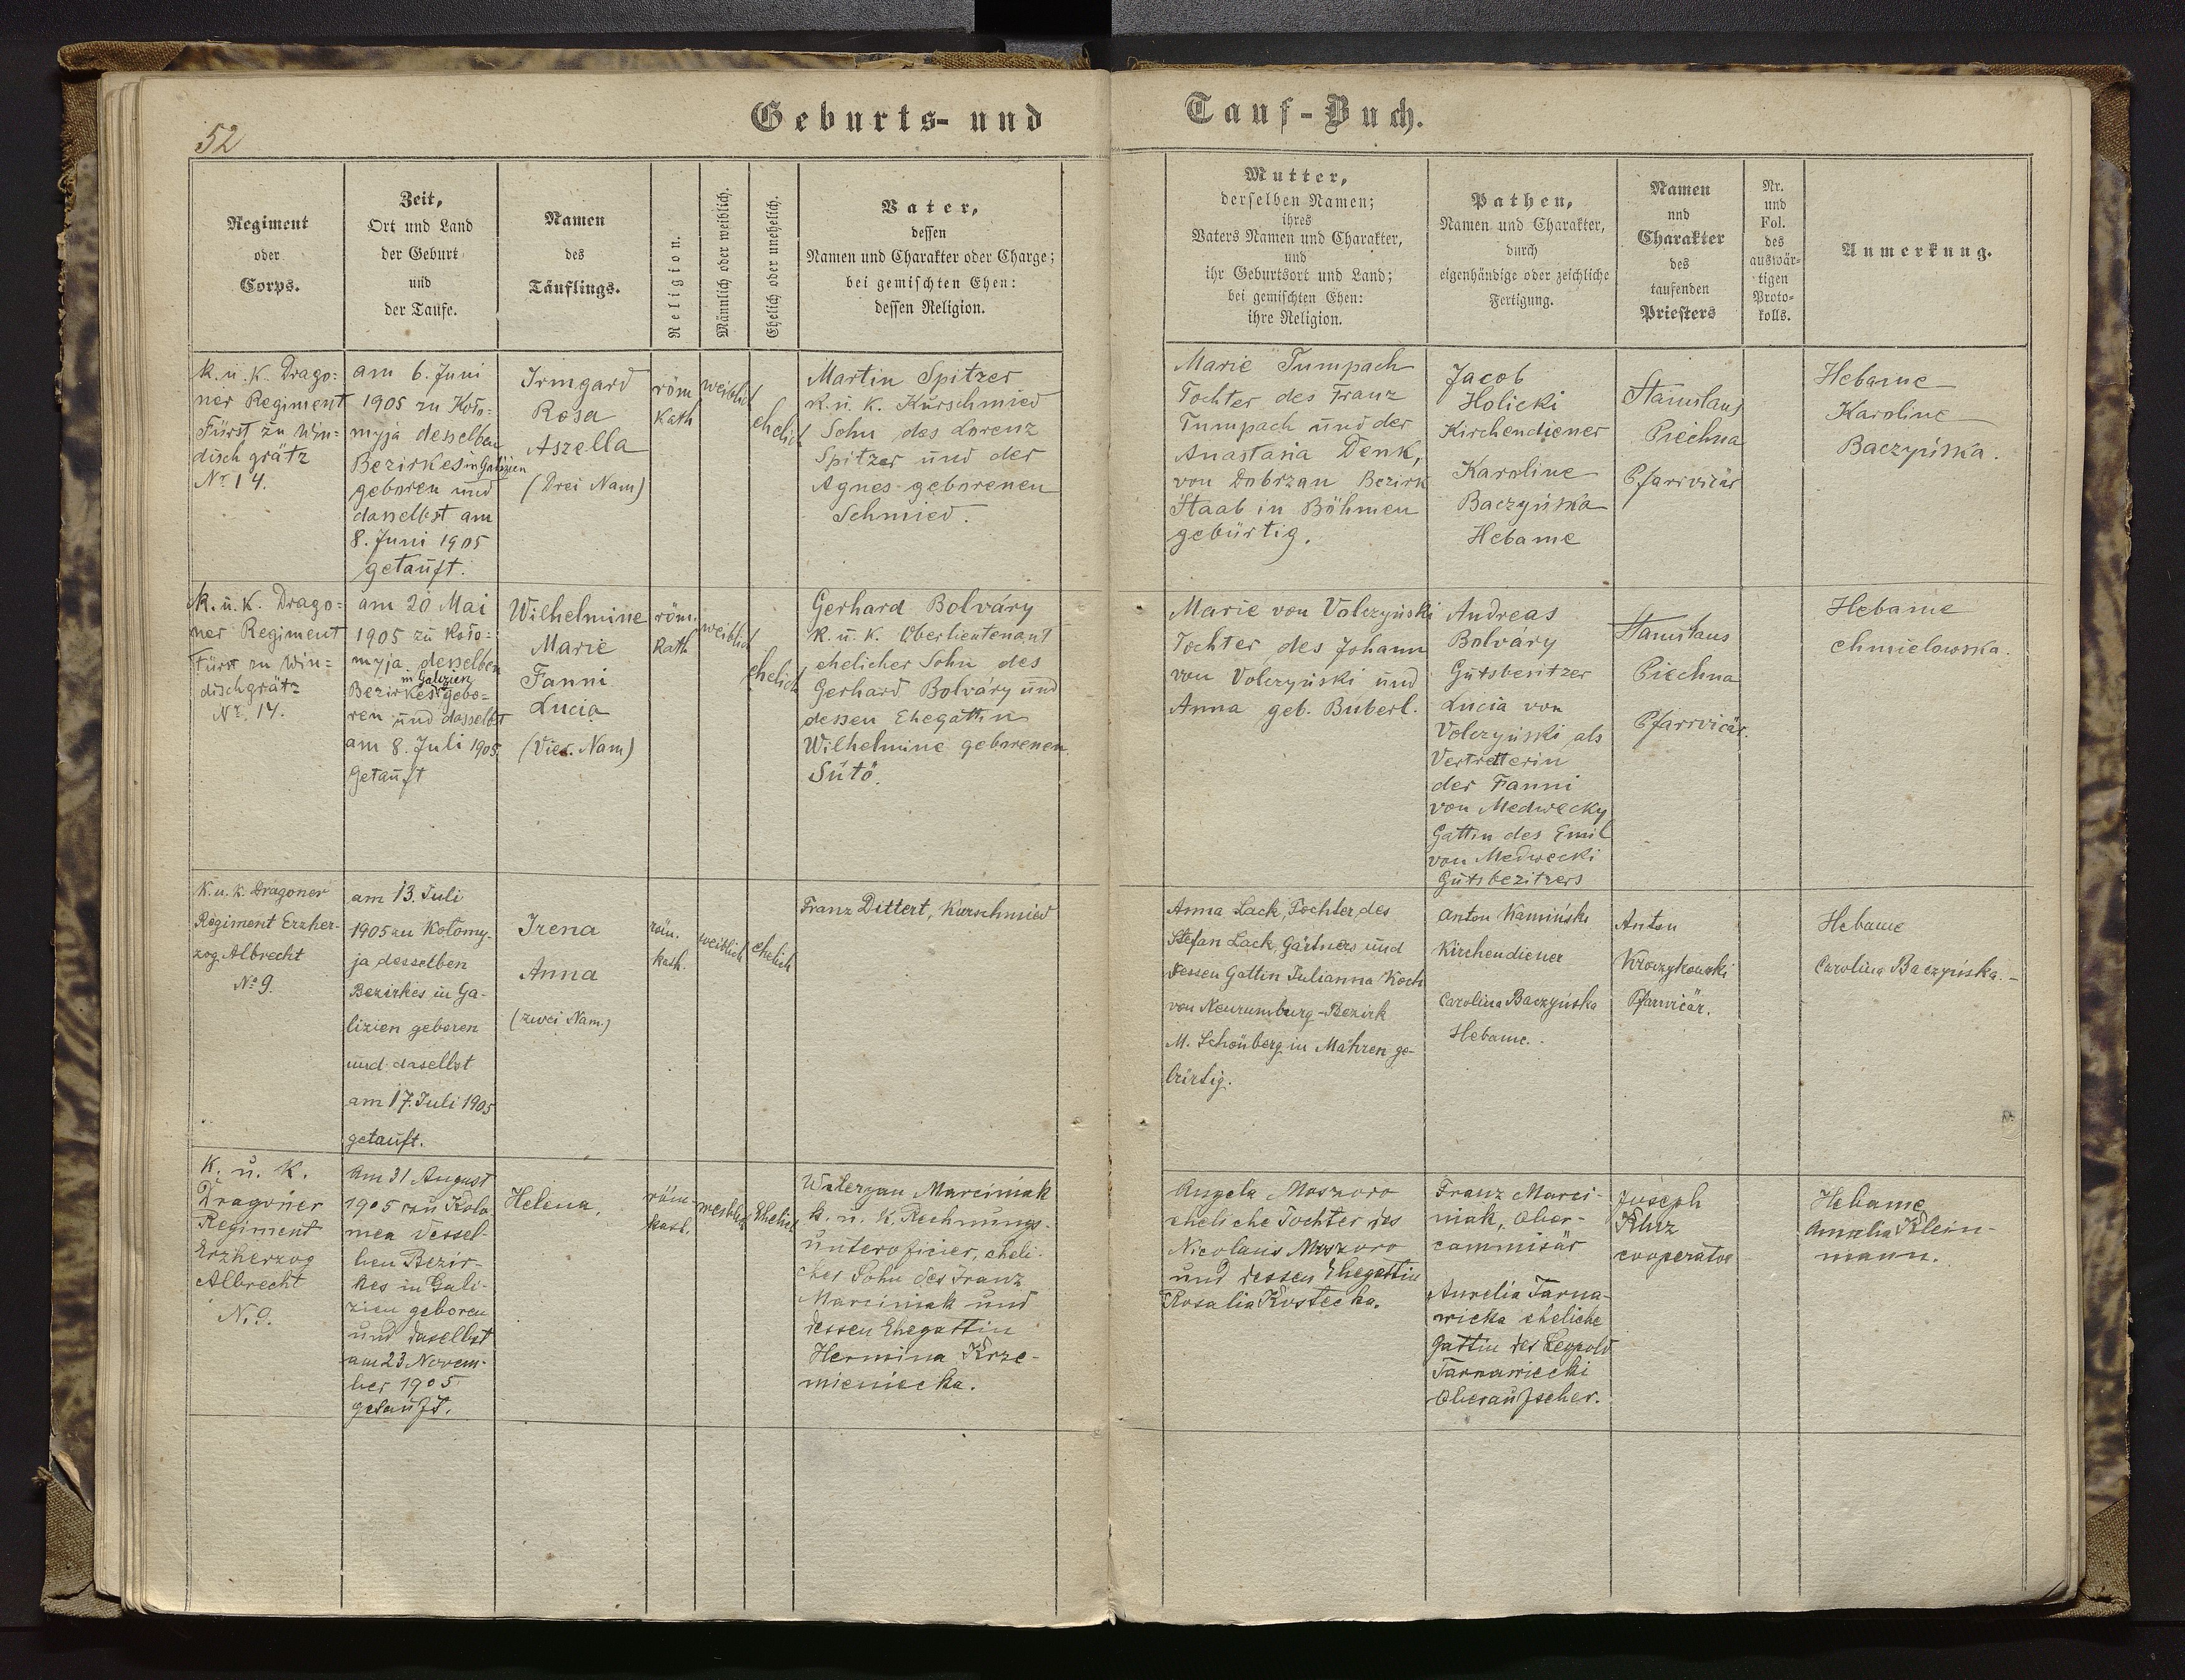 52
Geburts- und
Tauf-Buch.
Regiment
oder
Corps.
Zeit,
Ort und Land
der Geburt
und
der Taufe.
Namen
des
Täuflings.
Religion.
Männlich oder weiblich.
Ehelich oder unehelich.
Vater,
dessen
Namen und Charakter oder Charge;
bei gemischten Ehen:
dessen Religion.
Mutter,
derselben Namen;
ihres
Vaters Namen und Charakter,
und
ihr Geburtsort und Land;
bei gemischten Ehen:
ihre Religion.
Pathen,
Namen und Charakter,
durch
eigenhändige oder zeichliche
Fertigung.
Namen
und
Charakter
des
taufenden
Priesters
Nr.
und
Fol.
des
auswär-
tigen
Proto-
kolls.
Anmerkung.
K. u. K. Drago:
ner Regiment
Fürst zu Win:
disch grätz
No 14.
am 6. Juni
1905 zu Koło:
myja desselben
Bezirkes in Galizien
geboren und
dasselbst am
8. Juni 1905
getauft.
Irmgard
Rosa
Aszella
(Drei Nam)
röm
Kath
weiblich
ehelich
Martin Spitzer
k. u. K. Kurschmied
Sohn des Lorenz
Spitzer und der
Agnes geborenen
Schmied.
Marie Tumpach
Tochter des Franz
Tumpach und der
Anastasia Denk,
von Dobrzan Bezirk
Staab in Böhmen
gebürtig.
Jacob
Holicki
Kirchendiener
Karoline
Baczyńska
Hebame
Stanislaus
Piechna
Pfarrvicär
Hebame
Karoline
Baczyńska.
K. u. K. Drago:
ner Regiment
Fürst zu Win=
dischgrätz
No. 14.
am 20 Mai
1905 zu Koło:
myja desselben
in Galizien
Bezirkes gebo=
ren und dasselbst
am 8. Juli 1905
Getauft
Wilhelmine
Marie
Fanni
Lucia
(Vier. Nam)
röm.
Kath
weiblich
ehelich
Gerhard Bolváry
K. u. K. Oberlieutenant
ehelicher Sohn des
Gerhard Bolváry und
dessen Ehegattin
Wilhelmine geborenen
Sütö.
Marie von Volczyński
Tochter des Johann
von Volczyński und
Anna geb. Buberl.
Andreas
Bolváry
Gutsbesitzer
Lucia von
Volczyński als
Vertretterin
der Fanni
von Medwecky
Gattin des Emil
von Medwecki
Gutsbezitzers
Stanislaus
Piechna
Pfarrvicär.
Hebame
Chmielowska.
K. u. K. Dragoner
Regiment Erzher-
zog Albrecht
No 9.
am 13. Juli
1905 zu Kołomy-
ja desselben
Bezirkes in Ga-
lizien geboren
und daselbst
am 17. Juli 1905
getauft.
Irena
Anna
(zwei Nam.)
röm.
kath.
weiblich
ehelich
Franz Dittert, Kurschmied
Anna Lack, Tochter des
Stefan Lack, Gärtners und
dessen Gattin Julianna Koch
von Neurumburg-Bezirk
M. Schönberg in Mähren ge-
bürtig.
Anton Kamiński
Kirchendiener
Carolina Baczyńska
Hebame.
Anton
Pfarrvicär.
Hebame
Carolina Baczyńska.-
K. u. K.
Dragoner
Regiment
Erzherzog
Albrecht
N. 9.
Am 31 August
1905 zu Kolo
mea dessel-
ben Bezir-
kes in Gali-
zien geboren
und daselbst
am 23 Novem-
ber 1905
getauft.
Helena,
röm-
kath.
weiblich
Ehelich
Walerzan Marciniak
k. u. K. Rechnungs-
unteroficier, eheli-
cher Sohn des Franz
Marciniak und
dessen Ehegattin
Hermina Krze-
mieniecka.
Angela Moszoro
eheliche Tochter des
Nicolaus Moszoro
und dessen Ehegattin
Rosalia Kostecka.
Franz Marci-
niak, Ober-
commisär
Aurelia Tarna-
wicka eheliche
Gattin des Leopold
Tarnawiecki
Oberaufseher.
Joseph
cooperator
Hebame
Amalia Klein-
mann.